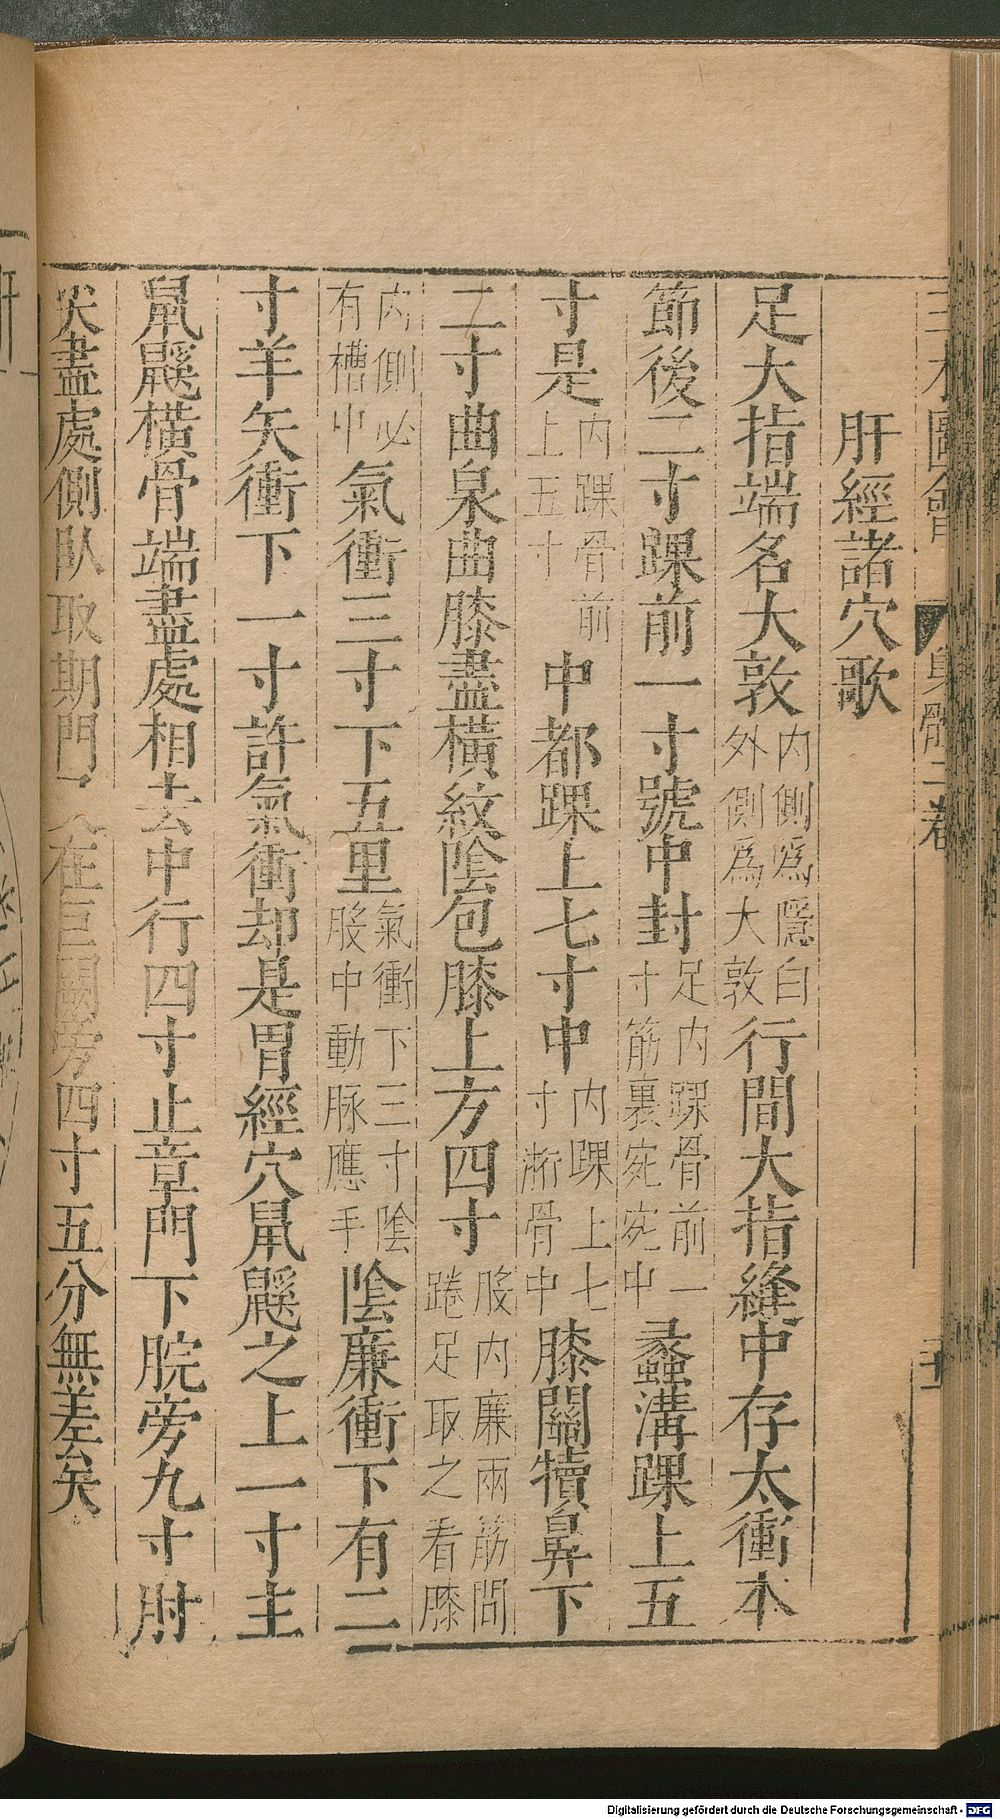 三才圖會 身體二卷
肝經諸穴歌
足大指端名大敦內側爲隱白外側爲大敦行間大指縫中存太衝本
節後二寸踝前一寸號中封足內踝骨前一寸筋裏宛宛中蠡溝踝上五
寸是內踝骨前上五寸中都踝上七寸中內踝上七寸䯒骨中膝關犢鼻下
二寸曲泉曲膝盡橫紋陰包膝上方四寸股內廉兩筋間踡足取之看膝
內側必有槽中氣衝三寸下五里氣衝下三寸陰股中動脉應手陰廉衝下有二
寸羊矢衝下一寸許氣衝却是胃經穴鼠鼷之上一寸主
鼠鼷橫骨端盡處相去中行四寸止章門下脘旁九寸肘
尖盡處側臥取期門又在巨闕旁四寸五分無差矣
Digitalisierung gefördert durch die Deutsche Forschungsgemeinschaft - DFG